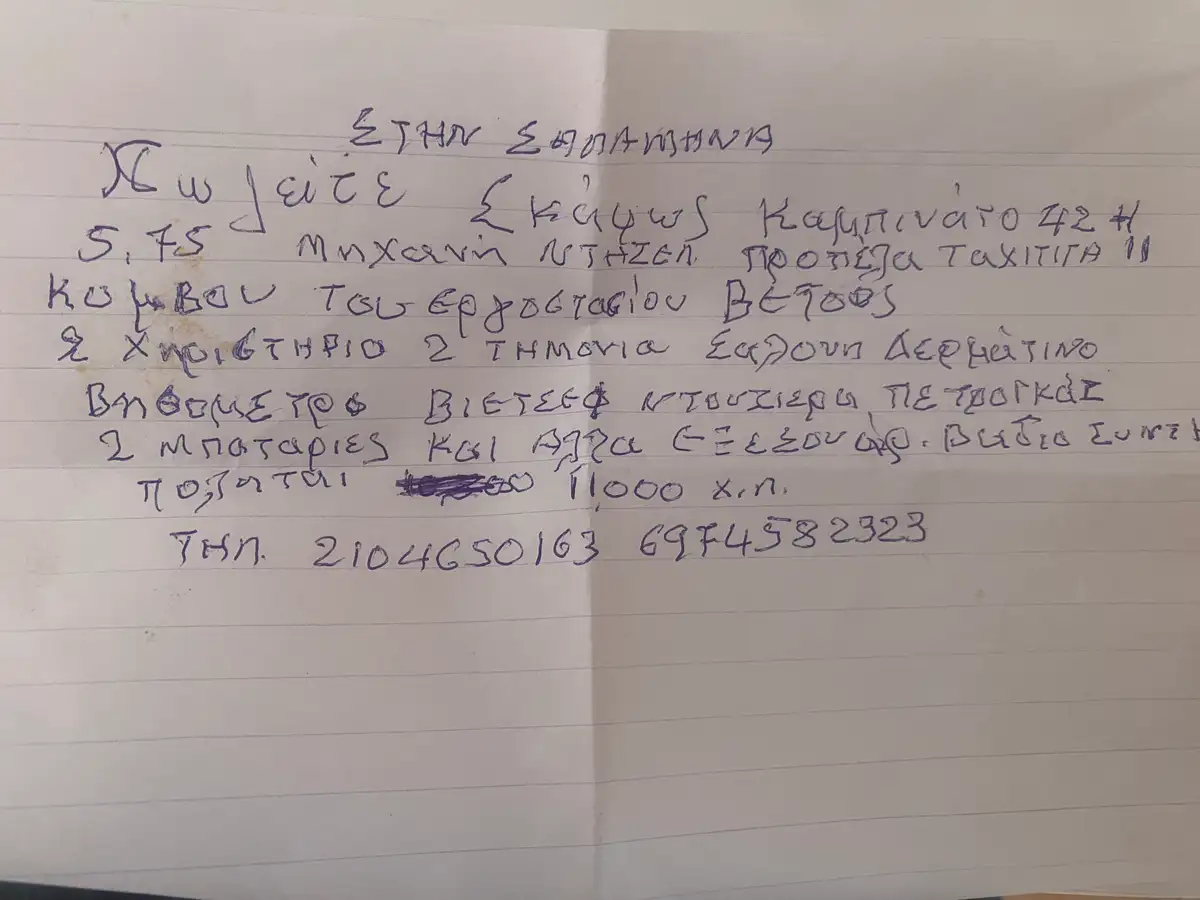 ΣΤΗΝ ΣΑΛΑΜΗΝΑ
Πωλείτε Σκάφως Καμπινάτο 42 Η
5,75 Μηχανή ΝΤΗΖΕΛ ΠΡΟΠΈΛΑ ΤΑΧΙΤΙΤΑ 11
Κομβου του εργοστασίου ΒΕΤΟΥΣ
2 ΧΗΡΙΣΤΗΡΙΟ 2 ΤΗΜΟΝΙΑ Σαλονη Δερμάτινο
Βηθομετρο ΒΙΕΤΣΕΦ ΝΤΟΥΖΙΕΡΑ, ΠΕΤΡΟΓΚΑΖ
2 μπαταριες και Αλλα ΕΞΕΣΟΥάρ.
ΠΟλΗΤΑΙ 11,000 χ.π.
ΤΗΛ. 2104650163 6974582323